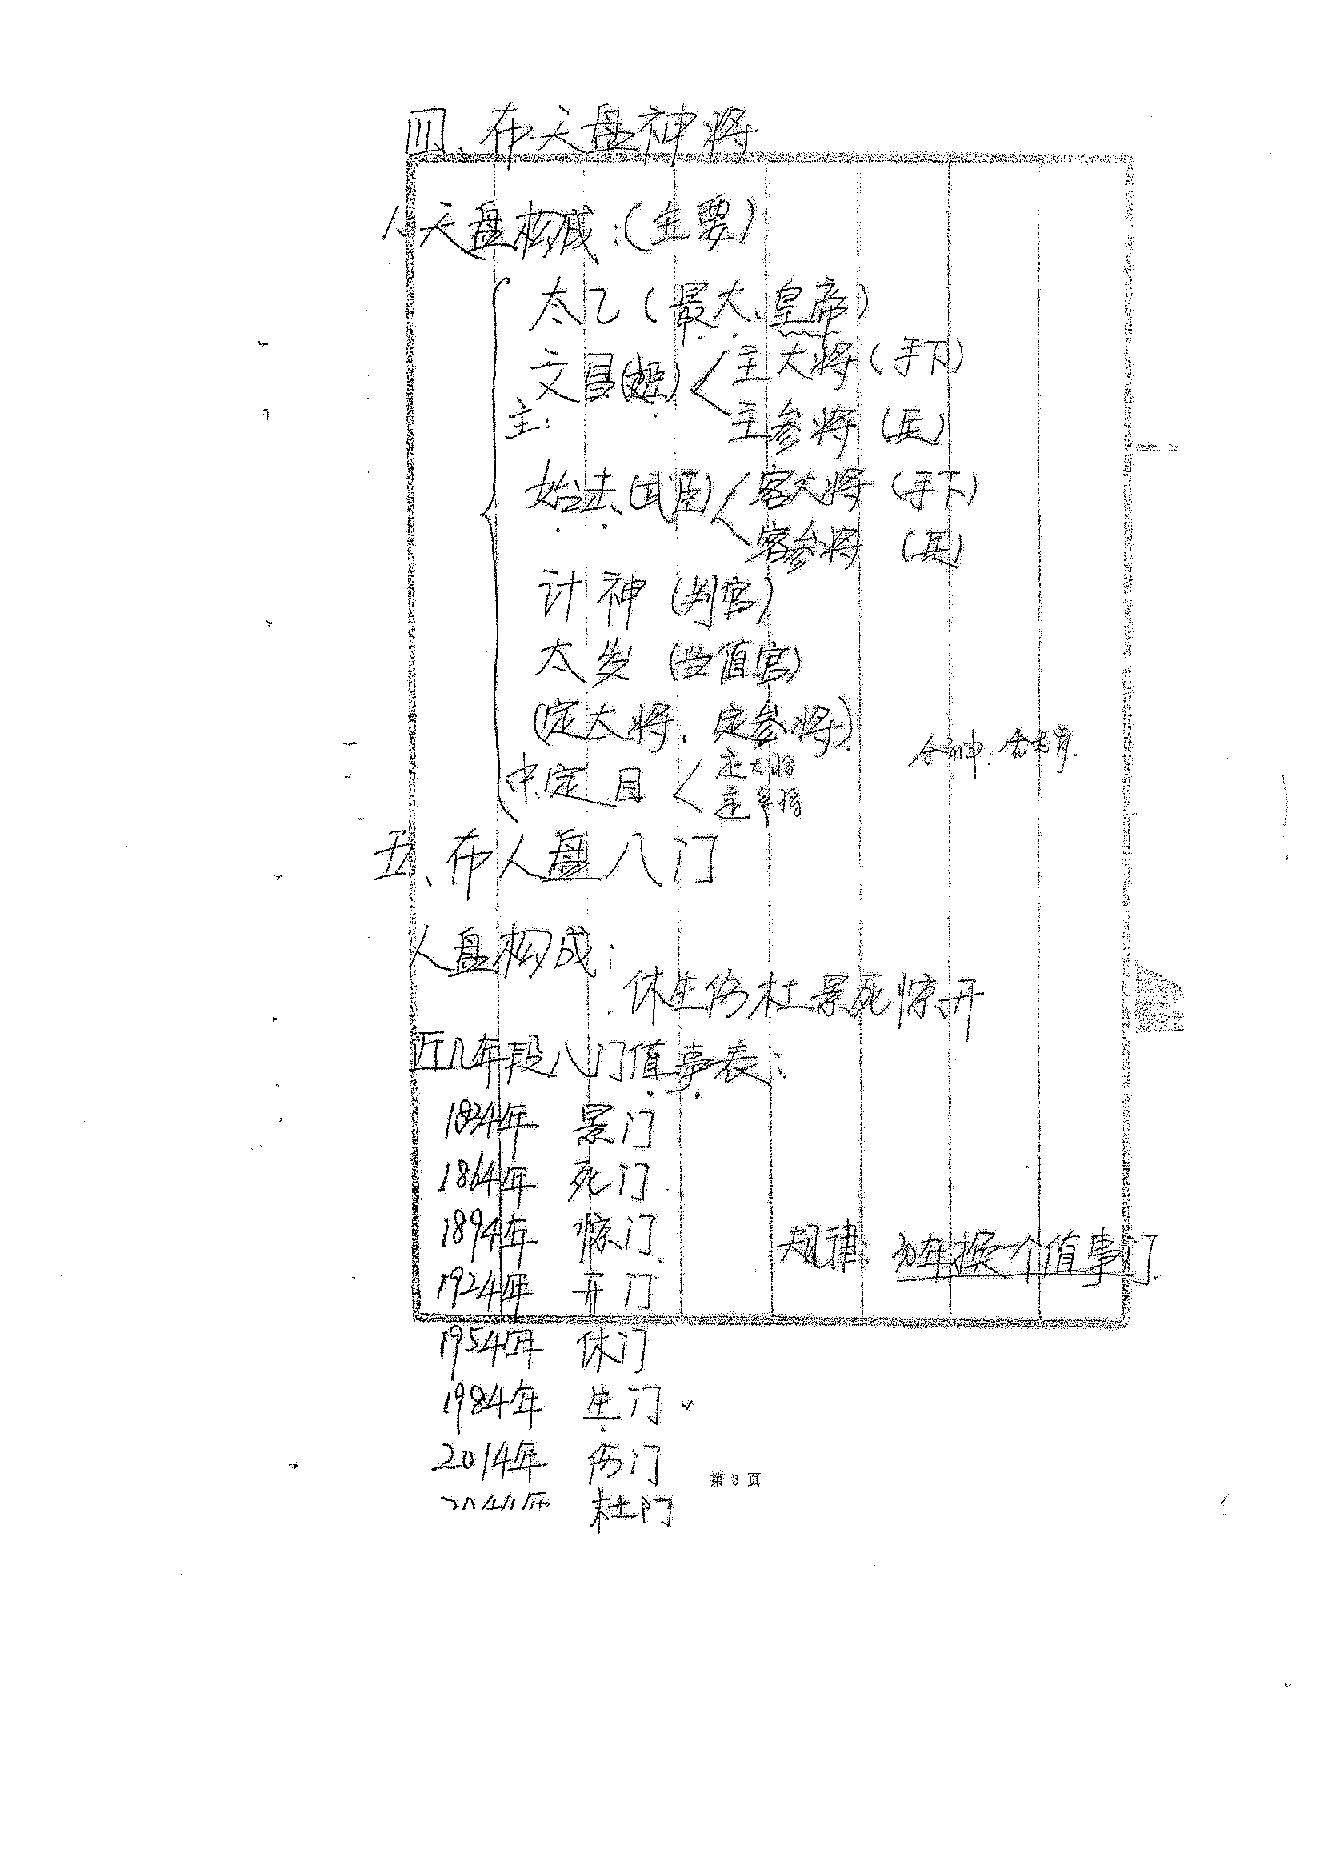 四、布天盘神将
1、天盘构成：(主要)
太乙(最大、皇帝)
主：文昌(文臣) < 主大将(手下)
主参将(兵)
始击(武臣) < 客大将(手下)
客参将 (兵)
计神 (判官)
太岁 (当值官)
(定大将、定参将)
合神、合太岁.
定目 < 定大将
定参将
五、布人盘八门
人盘构成：
休生伤杜景死惊开
近几年段八门值事表：
1834年 景门
1864年 死门
1894年 惊门
规律：30年换一个值事门.
1924年 开门
1954年 休门
1984年 生门
2014年 伤门
杜门
第 页